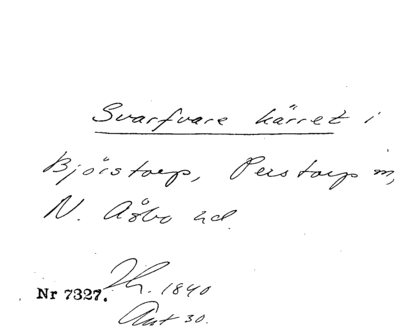 Svarfvare kärret i
Björstorp, Perstorp sn,
N. Åsbo hd.
Nr 7327. Th. 1840
Ant 30.